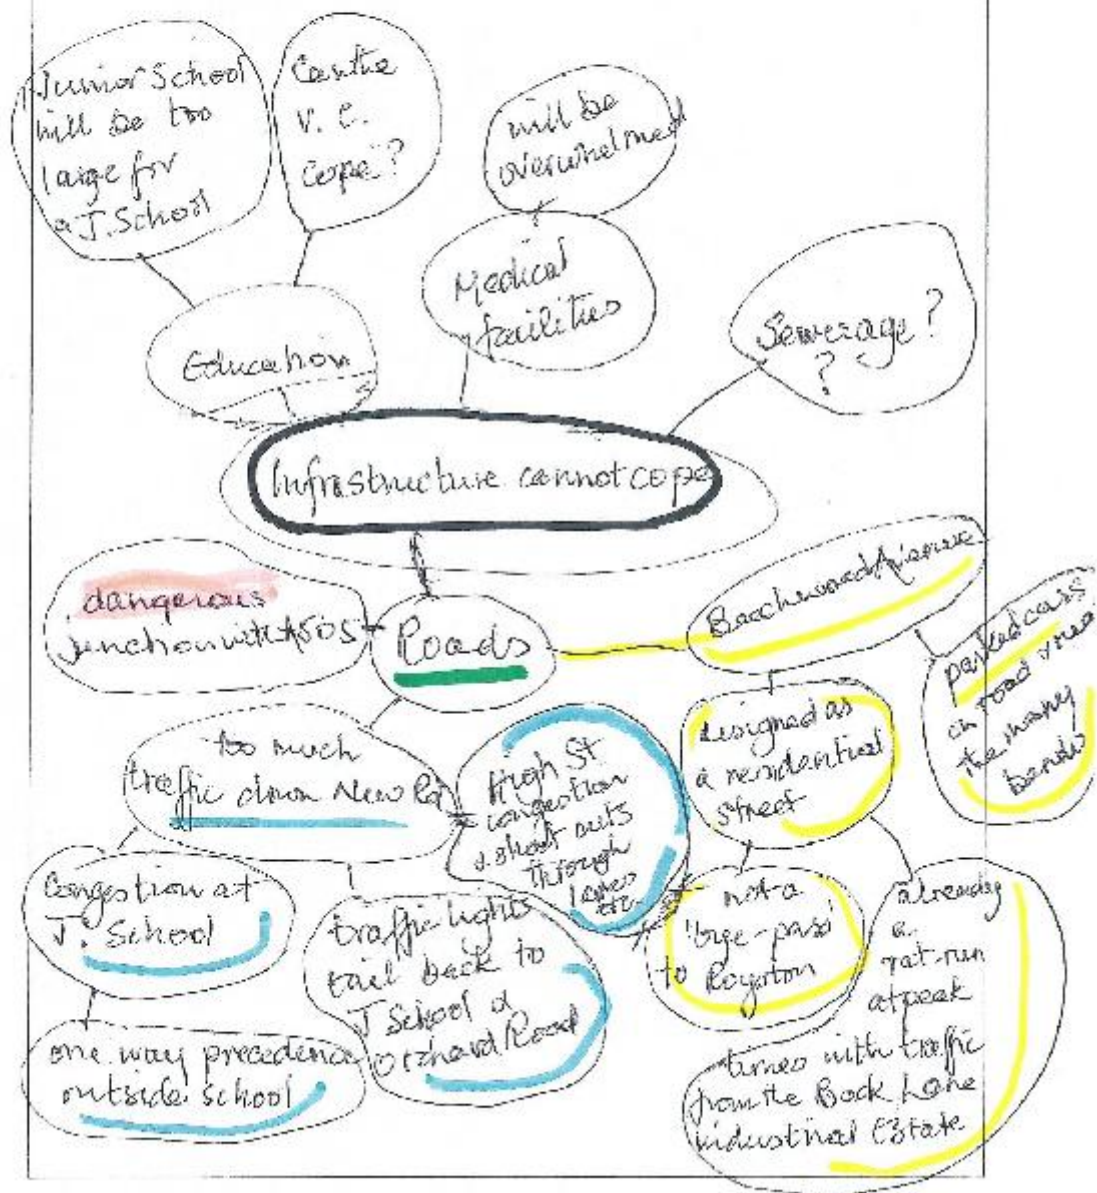 Junior School
will be too
large for
a J. School
Can the
V. C.
cope?
will be
overwhelmed
Medical
facilities
Sewerage?
?
Education
Infrastructure cannot cope
dangerous
junction with A505
Roads
Beechwood Avenue
parked cars
in road
the many
bends
too much
traffic down New Rd
High St
congestion
& short cuts
through
lanes
etc.
designed as
a residential
street
Congestion at
J. School
traffic lights
tail back to
J School &
Orchard Road
not a
'bye-pass'
to Royston
already
a
rat-run
at peak
times with traffic
from the Back Lane
industrial Estate
one way precedence
outside school